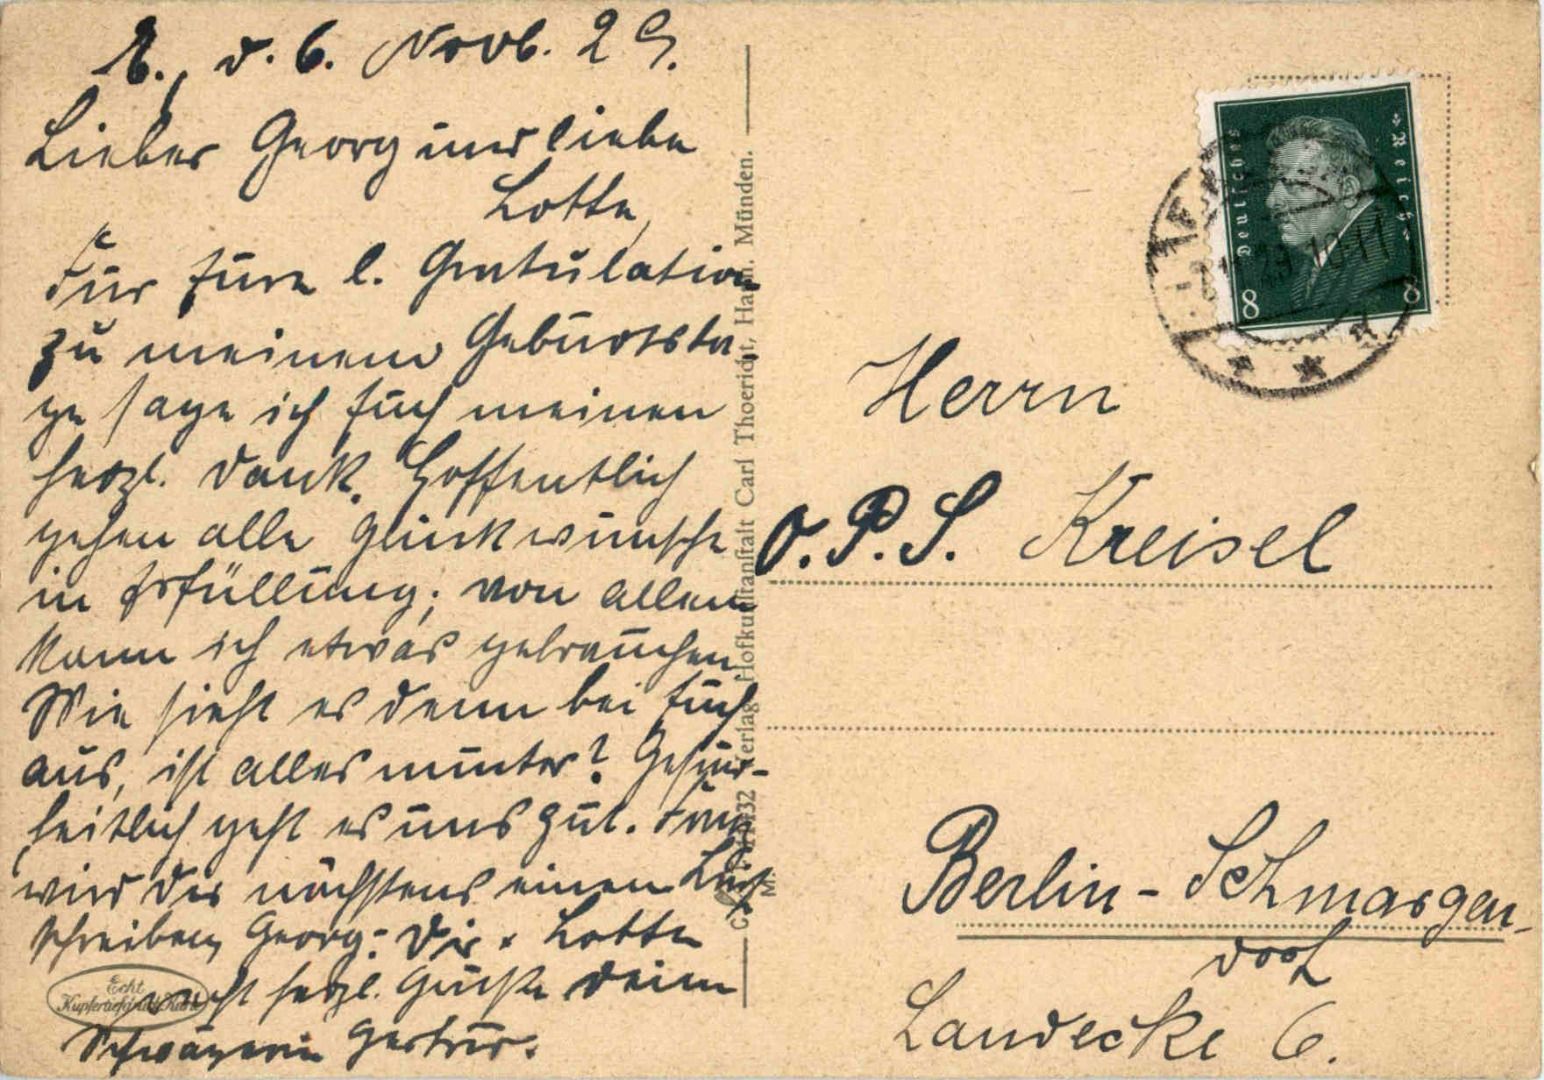 B., d. 6. Novb. 29.
Lieber Georg und liebe
Lotte,
Für Eure l. Gratulation
zu meinem Geburtsta-
ge sage ich Euch meinen
herzl. Dank. Hoffentlich
gehen alle Glückwünsche
in Erfüllung; von allem
kann ich etwas gebrauchen
Wie sieht es denn bei Euch
aus, ist alles munter? Gesund-
heitlich geht es uns gut.
wird Dir nächstens einen
schreiben, Georg. Dir u. Lotte
recht herzl. Grüße Deine
Schwägerin Gertrud.
Echt
Kupfertiefdruck-Karte
Verlag Hofkunstanstalt Carl Thoericht, Hann. Münden.
Deutsches Reich
8 8
29.10-11
Herrn
O.P.S. Kreisel
Berlin-Schmargen-
dorf
Landecke 6.